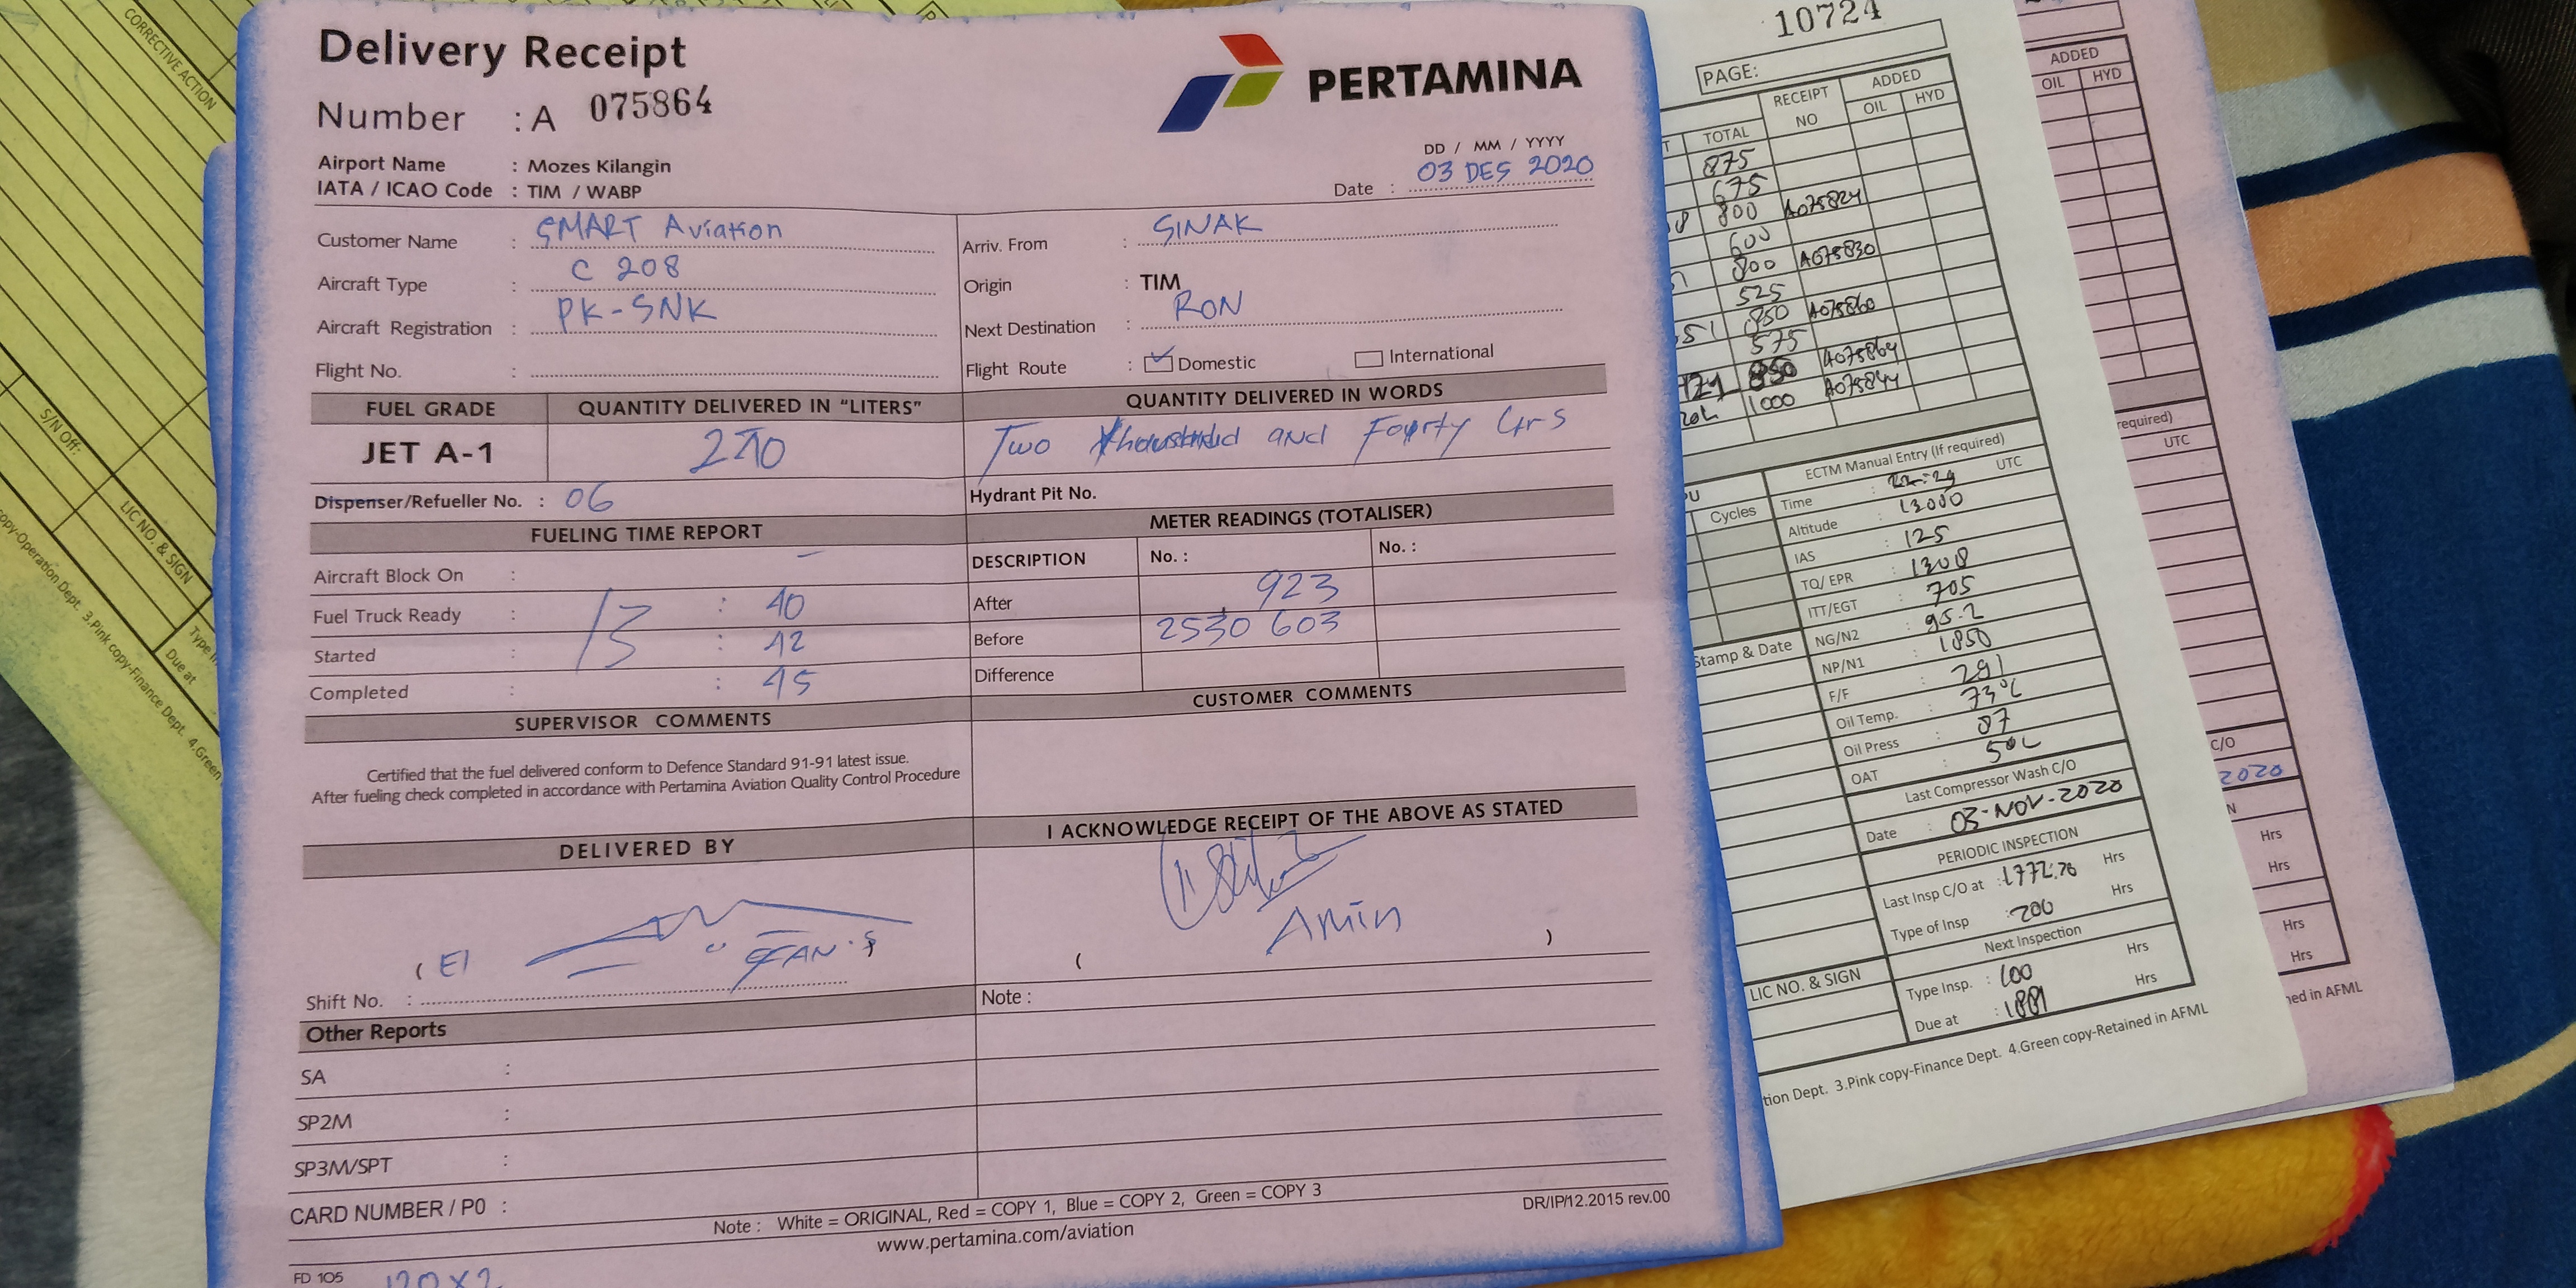 Delivery Receipt
Number : A 075864
PERTAMINA
Airport Name : Mozes Kilangin
IATA / ICAO Code : TIM / WABP
DD / MM / YYYY
Date : 03 DES 2020
Customer Name : SMART Aviation
Aircraft Type : C 208
Aircraft Registration : PK-SNK
Flight No. :
Arriv. From : SINAK
Origin : TIM
Next Destination : RON
Flight Route : Domestic International
FUEL GRADE QUANTITY DELIVERED IN "LITERS" QUANTITY DELIVERED IN WORDS
JET A-1 240 Two and Fourty Ltrs
Dispenser/Refueller No. : 06 Hydrant Pit No.
FUELING TIME REPORT
Aircraft Block On :
Fuel Truck Ready : 13 : 40
Started : : 42
Completed : : 45
METER READINGS (TOTALISER)
DESCRIPTION No. : No. :
After 923
Before 2530 603
Difference
SUPERVISOR COMMENTS
CUSTOMER COMMENTS
Certified that the fuel delivered conform to Defence Standard 91-91 latest issue.
After fueling check completed in accordance with Pertamina Aviation Quality Control Procedure
DELIVERED BY
I ACKNOWLEDGE RECEIPT OF THE ABOVE AS STATED
Amin
Shift No. :
Note :
Other Reports
SA :
SP2M :
SP3M/SPT :
CARD NUMBER / P0 :
Note : White = ORIGINAL, Red = COPY 1, Blue = COPY 2, Green = COPY 3
www.pertamina.com/aviation
DR/IP/12.2015 rev.00
FD 105
120 x 2
10724
PAGE:
TOTAL RECEIPT NO ADDED
OIL HYD
875
675
800 A075824
600
800 A075830
525
850 A075860
575
850 A075864
1000 A075844
ECTM Manual Entry (If required)
Cycles
Time : UTC
Altitude : 13000
IAS : 125
TQ/ EPR : 1308
ITT/EGT : 705
NG/N2 : 95.2
NP/N1 : 1850
F/F : 291
Oil Temp. : 73°C
Oil Press : 87
OAT : 5°C
Stamp & Date
Last Compressor Wash C/O
Date : 03-NOV-2020
PERIODIC INSPECTION
Last Insp C/O at : 1772.70 Hrs
Type of Insp : 200 Hrs
Next Inspection
Type Insp. : 100 Hrs
Due at : 1881 Hrs
LIC NO. & SIGN
tion Dept. 3.Pink copy-Finance Dept. 4.Green copy-Retained in AFML
ADDED
OIL HYD
required)
UTC
C/O
2020
Hrs
Hrs
Hrs
Hrs
ned in AFML
CORRECTIVE ACTION
S/N Off:
LIC NO. & SIGN
Due at
copy-Operation Dept. 3.Pink copy-Finance Dept. 4.Green